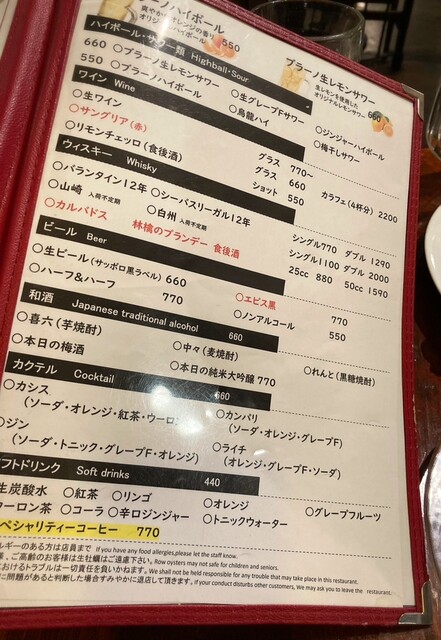 ノハイボール
爽やかなオレンジの香り
オリジナルハイボール 550
プラーノ生レモンサワー
生レモンを使用した
オリジナルレモンサワー 660
ハイボール・サワー類 Highball・Sour
660 ○プラーノ生レモンサワー ○生グレープFサワー ○ジンジャーハイボール
550 ○プラーノハイボール ○烏龍ハイ ○梅干しサワー
ワイン Wine
○生ワイン グラス 770~ カラフェ(4杯分) 2200
○サングリア(赤) グラス 660
○リモンチェッロ(食後酒) ショット 550
ウィスキー Whisky
○バランタイン12年 ○シーバスリーガル12年 シングル770 ダブル 1290
○山崎 入荷不定期 ○白州 入荷不定期 シングル1100 ダブル 2000
○カルバドス 林檎のブランデー 食後酒 25cc 880 50cc 1590
ビール Beer
○生ビール(サッポロ黒ラベル) 660 ○エビス黒 770
○ハーフ&ハーフ 770 ○ノンアルコール 550
和酒 Japanese traditional alcohol 660
○喜六(芋焼酎) ○中々(麦焼酎) ○れんと(黒糖焼酎)
○本日の梅酒 ○本日の純米大吟醸 770
カクテル Cocktail 660
○カシス ○カンパリ
(ソーダ・オレンジ・紅茶・ウーロン (ソーダ・オレンジ・グレープF)
○ジン ○ライチ
(ソーダ・トニック・グレープF・オレンジ) (オレンジ・グレープF・ソーダ)
フトドリンク Soft drinks 440
生炭酸水 ○紅茶 ○リンゴ ○オレンジ ○グレープフルーツ
ウーロン茶 ○コーラ ○辛口ジンジャー ○トニックウォーター
ペシャリティーコーヒー 770
ルギーのある方は店員まで If you have any food allergies,please let the staff know.
様、ご高齢のお客様は生牡蠣はご遠慮下さい。Row oysters may not safe for children and seniors.
おけるトラブルは一切責任を負いかねます。We shall not be held responsible for any trouble that may take place in this restaurant.
に問題があると判断した場合すみやかに退店して頂きます。If your conduct disturbs other customers, We may ask you to leave the restaurant.